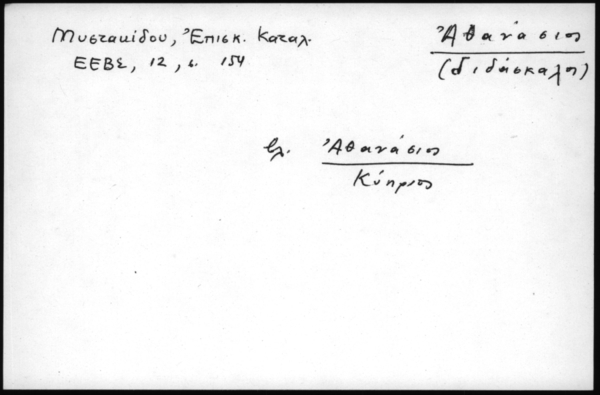 Μυστακίδου, Ἐπισκ. Καταλ.
ΕΕΒΣ, 12, σ. 154
Ἀθανάσιος
(διδάσκαλος)
βλ. Ἀθανάσιος
Κύπριος